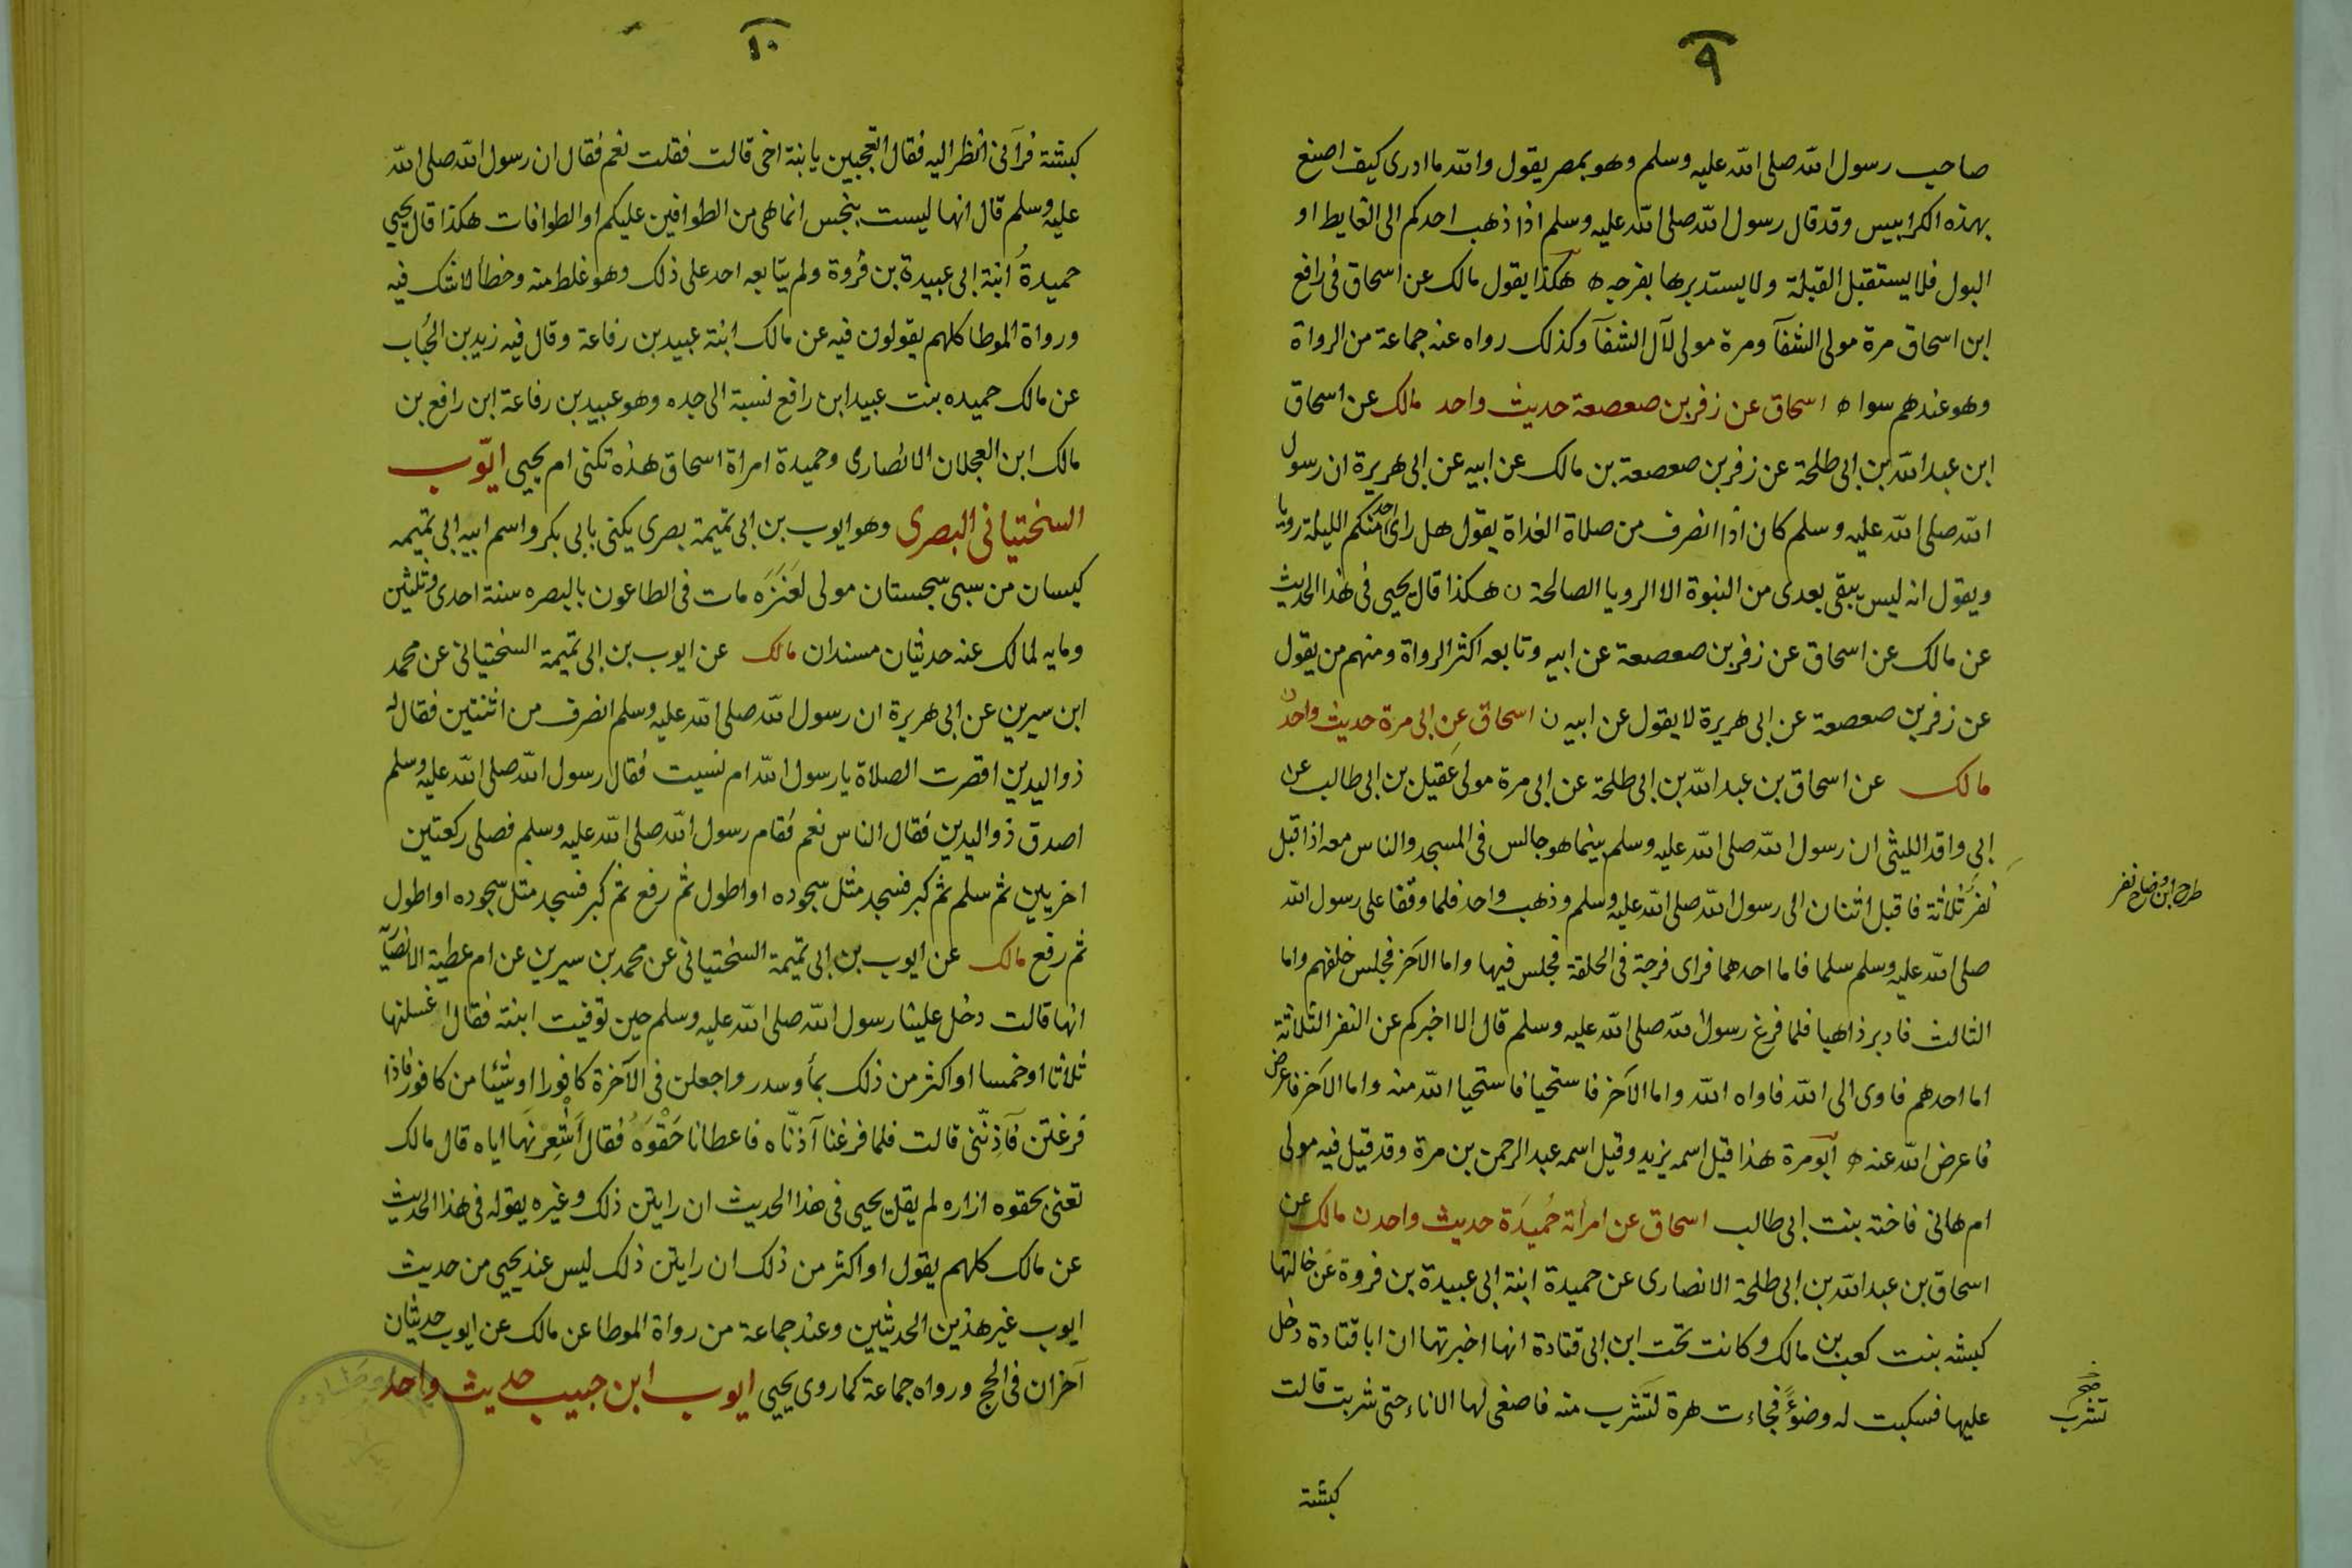 ٩
صاحب رسول الله صلى الله عليه وسلم وهو بمصر يقول والله ما ادرى كيف اصنع
بهذه الكرابيس وقد قال رسول الله صلى الله عليه وسلم اذا ذهب احدكم الى الغايط او
البول فلا يستقبل القبلة ولا يستدبرها بفرجه ه هكذا يقول مالك عن اسحاق فى رافع
ابن اسحاق مرة مولى الشفآ ومرة مولى لآل الشفآ وكذلك رواه عنه جماعة من الرواة
وهو عندهم سوا ه اسحاق عن زفر بن صعصعة حديث واحد مالك عن اسحاق
ابن عبد الله بن ابى طلحة عن زفر بن صعصعة بن مالك عن ابيه عن ابى هريرة ان رسول
الله صلى الله عليه وسلم كان اذا انصرف من صلاة الغداة يقول هل راى احد منكم الليلة رويا
ويقول انه ليس يبقى بعدى من النبوة الا الرويا الصالحة ن هكذا قال يحيى فى هذا الحديث
عن مالك عن اسحاق عن زفر بن صعصعة عن ابيه وتابعه اكثر الرواة ومنهم من يقول
عن زفر بن صعصعة عن ابى هريرة لا يقول عن ابيه ن اسحاق عن ابى مرة حديث واحد ن
مالك عن اسحاق بن عبد الله بن ابى طلحة عن ابى مرة مولى عَقيل بن ابى طالب عن
ابى واقد الليثى ان رسول الله صلى الله عليه وسلم بينما هو جالس فى المسجد والناس معه اذ اقبل
نفر ثلاثة فاقبل اثنان الى رسول الله صلى الله عليه وسلم وذهب واحد فلما وقفا على رسول الله
طرح ابن وضاح نفر
صلى الله عليه وسلم سلما فاما احدهما فراى فرجة فى الحلقة فجلس فيها واما الآخر فجلس خلفهم واما
الثالث فادبر ذاهبا فلما فرغ رسول الله صلى الله عليه وسلم قال الا اخبركم عن النفر الثلاثة
اما احدهم فاوى الى الله فاواه الله واما الآخر فاستحيا فاستحيا الله منه واما الآخر فاعرض
فاعرض الله عنه ه ابو مرة هذا قيل اسمه يزيد وقيل اسمه عبد الرحمن بن مرة وقد قيل فيه مولى
ام هانى فاخته بنت ابى طالب اسحاق عن امرأته حُميَدَة حديث واحد ن مالك عن
اسحاق بن عبد الله بن ابى طلحة الانصارى عن حميدة ابنة ابى عبيدة بن فروة عن خالتها
كبشه بنت كعب بن مالك وكانت تحت ابن ابى قتادة انها اخبرتها ان ابا قتادة دخل
عليها فسكبت له وضوءً فجاءت هرة لتشرب منه فاصغى لها الاناء حتى شربت قالت
تشرب
كبشة
١٠
كبشة فرآنى انظر اليه فقال اتعجبين يا بنة اخى قالت فقلت نعم فقال ان رسول الله صلى الله
عليه وسلم قال انها ليست بنجس انما هى من الطوافين عليكم او الطوافات هكذا قال يحيي
حميدةُ ابنة ابى عبيدة بن فروة ولم يتابعه احد على ذلك وهو غلط منه وخطأ لا شك فيه
ورواة الموطا كلهم يقولون فيه عن مالك ابنة عبيد بن رفاعة وقال فيه زيد بن الحُبَاب
عن مالك حميده بنت عبيد ابن رافع نسبة الى جده وهو عبيد بن رفاعة ابن رافع بن
مالك ابن العجلان الانصارى وحميدة امراة اسحاق هذه تكنى ام يحيى ايّوب
السختيانى البصرى وهو ايوب بن ابى تميمة بصرى يكنى بابى بكر واسم ابيه ابى تميمه
كيسان من سبى سجستان مولى لعَنَزَه مات فى الطاعون بالبصره سنة احدى وثلثين
ومايه لمالك عنه حديثان مسندان مالك عن ايوب بن ابى تميمة السختيانى عن محمد
ابن سيرين عن ابى هريرة ان رسول الله صلى الله عليه وسلم انصرف من اثنتين فقال له
ذو اليدين اقصرت الصلاة يا رسول الله ام نسيت فقال رسول الله صلى الله عليه وسلم
اصدق ذو اليدين فقال الناس نعم فقام رسول الله صلى الله عليه وسلم فصلى ركعتين
اخريين ثم سلم ثم كبر فسجد مثل سجوده او اطول ثم رفع ثم كبر فسجد مثل سجوده او اطول
ثم رفع مالك عن ايوب بن ابى تميمة السختيانى عن محمد بن سيرين عن ام عطية الانصاية
انها قالت دخل علينا رسول الله صلى الله عليه وسلم حين توفيت ابنته فقال اغسلنها
ثلاثا او خمسا او اكثر من ذلك بمأ وسدر واجعلن فى الآخرة كافورا او شيئا من كافور فاذا
فرغتن فآذِنّنى قالت فلما فرغنا آذنّاه فاعطانا حَقْوَهُ فقال أَشْعِرنَهَا اياه قال مالك
تعنى بحقوه ازاره لم يقل يحيى فى هذا الحديث ان رايتن ذلك وغيره يقوله فى هذا الحديث
عن مالك كلهم يقول او اكثر من ذلك ان رايتن ذلك ليس عند يحيي من حديث
ايوب غير هذين الحديثين وعند جماعة من رواة الموطا عن مالك عن ايوب حديثان
آخران فى الحج ورواه جماعة كما روى يحيي ايوب ابن حبيب حديث واحد